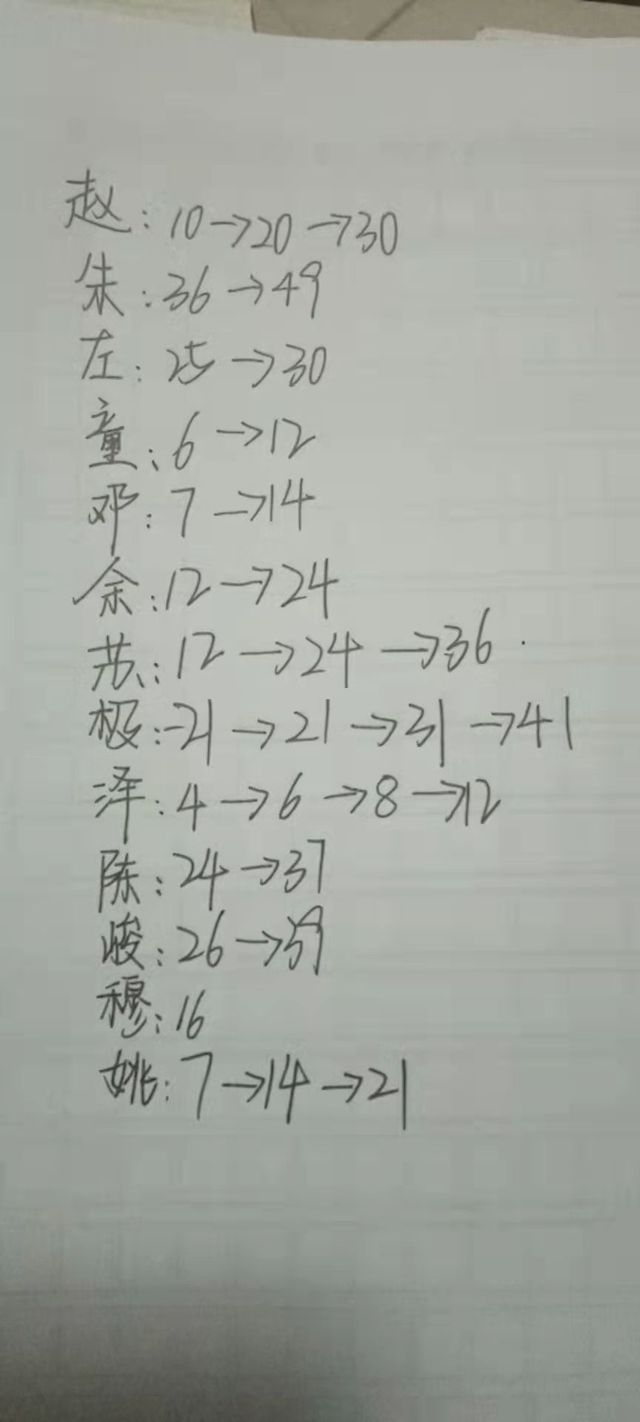 赵：10→20→30
朱：36→49
左：25→30
童：6→12
邓：7→14
余：12→24
苏：12→24→36
极：-21→21→31→41
泽：4→6→8→12
陈：24→37
峻：26→59
穆：16
姚：7→14→21